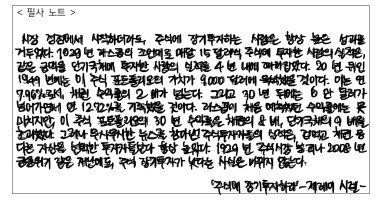 < 필사 노트 >
시장 정점에서 시작하더라도, 주식에 장기투자하는 사람은 항상 높은 성과를
거두었다. 1929년 라스콥의 조언대로 매월 15달러씩 주식에 투자한 사람의 실적은,
같은 금액을 단기국채에 투자한 사람의 실적을 4년 내에 따라잡았다. 20년 뒤인
1949년에는 이 주식 포트폴리오의 가치가 9,000달러에 육박했을 것이다. 이는 연
7.86%로서, 채권 수익률의 2배가 넘는다. 그리고 30년 뒤에는 6만 달러가
넘어가면서 연 12.72%를 기록했을 것이다. 라스콥이 처음 예측했던 수익률에는 못
미치지만, 이 주식 포트폴리오의 30년 수익률은 채권의 8배, 단기국채의 9배를
초과했다. 그러나 무시무시한 뉴스로 주식투자자들의 실적은, 채권 등
다른 자산을 선택한 투자자들보다 항상 높았다. 1929년 주식시장 2008년
금융위기 같은 재난에도, 주식 장기투자가 낫다는 사실은 바뀌지 않는다.
'주식에 장기투자하라' - 제레미 시겔 -